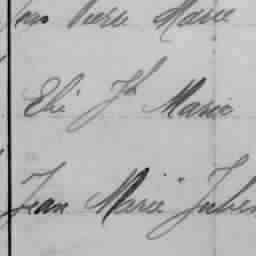 Pierre Marie
Elie Jh Marie
Jean Marie Julien